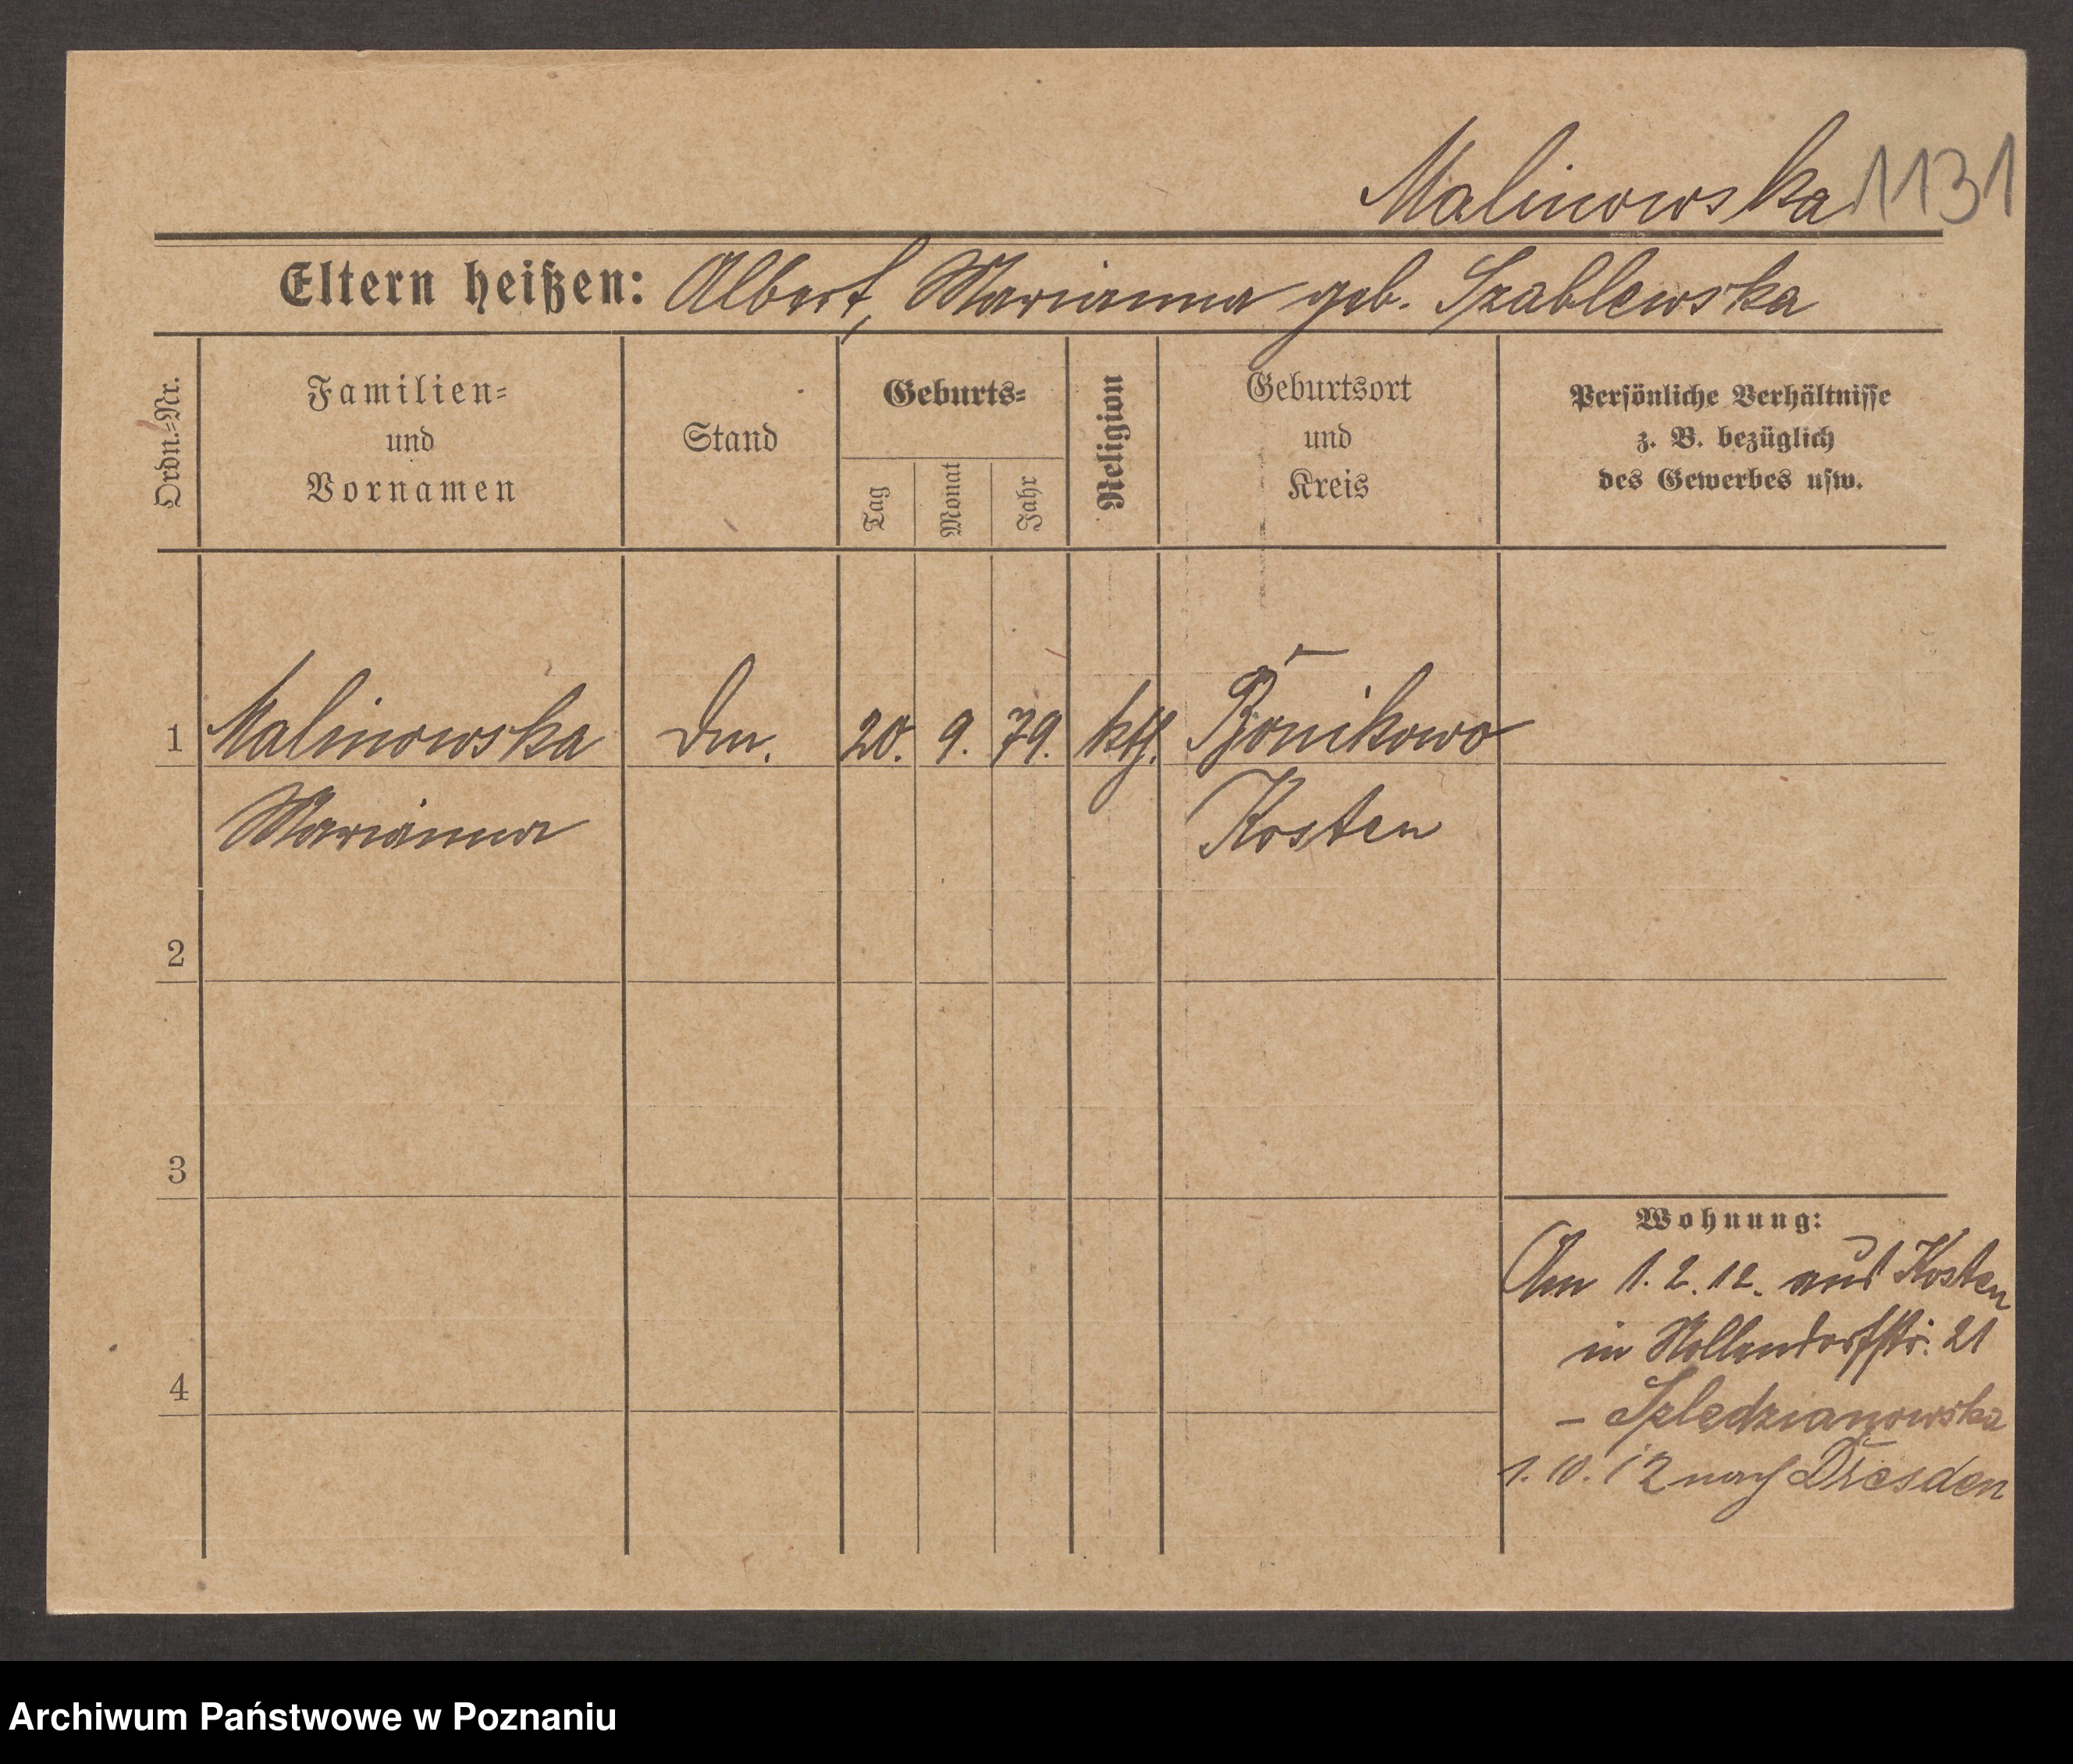 Malinowska 1131
Eltern heißen: Albert, Marianna geb. Szablewska
Ordn.=Nr.
Familien=
und
Vornamen
Stand
Geburts=
Tag
Monat
Jahr
Religion
Geburtsort
und
Kreis
Persönliche Verhältnisse
z. B. bezüglich
des Gewerbes usw.
1 Malinowska Dm. 20. 9. 79. kth. Bonikowo
Marianna Kosten
2
3
4
Wohnung:
Am 1. 2. 12. aus Kosten
in Nollendorfstr. 21
– Szledzianowska
1. 10. 12 nach Dresden
Archiwum Państwowe w Poznaniu